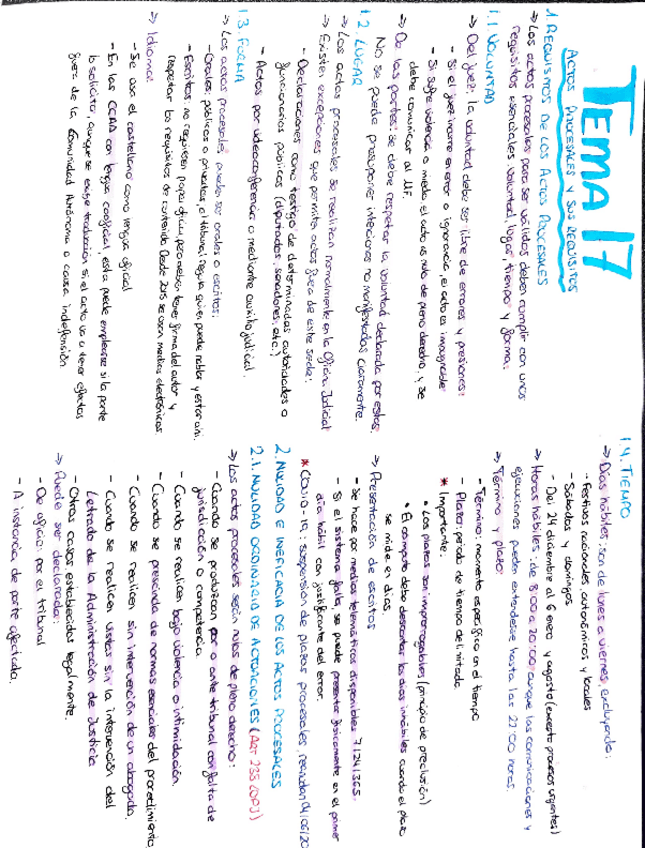 TEMA 17
ACTOS PROCESALES Y SUS REQUISITOS
1. REQUISITOS DE LOS ACTOS PROCESALES
→ Los actos procesales para ser válidos deben cumplir con unos
requisitos esenciales: voluntad, lugar, tiempo y forma:
1.1 VOLUNTAD
→ Del juez: la voluntad debe ser libre de errores y presiones:
- Si el juez incurre en error o ignorancia, el acto es impugnable
- Si sufre violencia o miedo, el acto es nulo de pleno derecho, y se
debe comunicar al MF.
→ De las partes: se debe respetar la voluntad declarada por estas.
No se puede presuponer intenciones no manifestadas claramente.
1.2 LUGAR
→ Los actos procesales se realizan normalmente en la Oficina Judicial
→ Existen excepciones que permiten actos fuera de esta sede:
- Declaraciones como testigo de determinadas autoridades o
funcionarios públicos (diputados, senadores, etc.)
- Actos por videoconferencia o mediante auxilio judicial.
1.3. FORMA
→ Los actos procesales pueden ser orales o escritos:
- Orales: públicos o privados, el tribunal regula quien puede hablar y estar ahí.
- Escritos: no requieren papel oficial, pero deben tener firma del autor y
respetar los requisitos de contenido. Desde 2015 se usan medios electrónicos
→ Idioma:
- Se usa el castellano como lengua oficial
- En las CCAA con lengua cooficial, esta puede emplearse si la parte
lo solicita, aunque se exige traducción si el acto va a tener efectos
fuera de la Comunidad Autónoma o causa indefensión
1.4. TIEMPO
→ Días hábiles: son de lunes a viernes, excluyendo:
- Festivos nacionales, autonómicos y locales
- Sábados y domingos
- Del 24 diciembre al 6 enero y agosto (excepto procesos urgentes)
→ Horas hábiles: de 8:00 a 20:00, aunque las comunicaciones y
ejecuciones pueden extenderse hasta las 22:00 horas.
→ Término y plazo:
- Término: momento específico en el tiempo
- Plazo: periodo de tiempo delimitado
* Importante:
• Los plazos son improrrogables (principio de preclusión)
• El cómputo debe descontar los días inhábiles cuando el plazo
se mide en días.
→ Presentación de escritos
- Se hace por medios telemáticos disponibles 7/24/365.
- Si el sistema falla, se puede presentar físicamente en el primer
día hábil con justificante del error.
* COVID-19: suspensión de plazos procesales, reanudan 04/06/20
2. NULIDAD E INEFICACIA DE LOS ACTOS PROCESALES
2.1. NULIDAD ORDINARIA DE ACTUACIONES (Art 238 LOPJ)
→ Los actos procesales serán nulos de pleno derecho:
- Cuando se produzcan por o ante tribunal con falta de
jurisdicción o competencia.
- Cuando se realicen bajo violencia o intimidación.
- Cuando se prescinda de normas esenciales del procedimiento
- Cuando se realicen sin intervención de un abogado.
- Cuando se realicen vistas sin la intervención del
Letrado de la Administración de Justicia
- Otros casos establecidos legalmente.
→ Puede ser declarada:
- De oficio: por el tribunal
- A instancia de parte afectada.